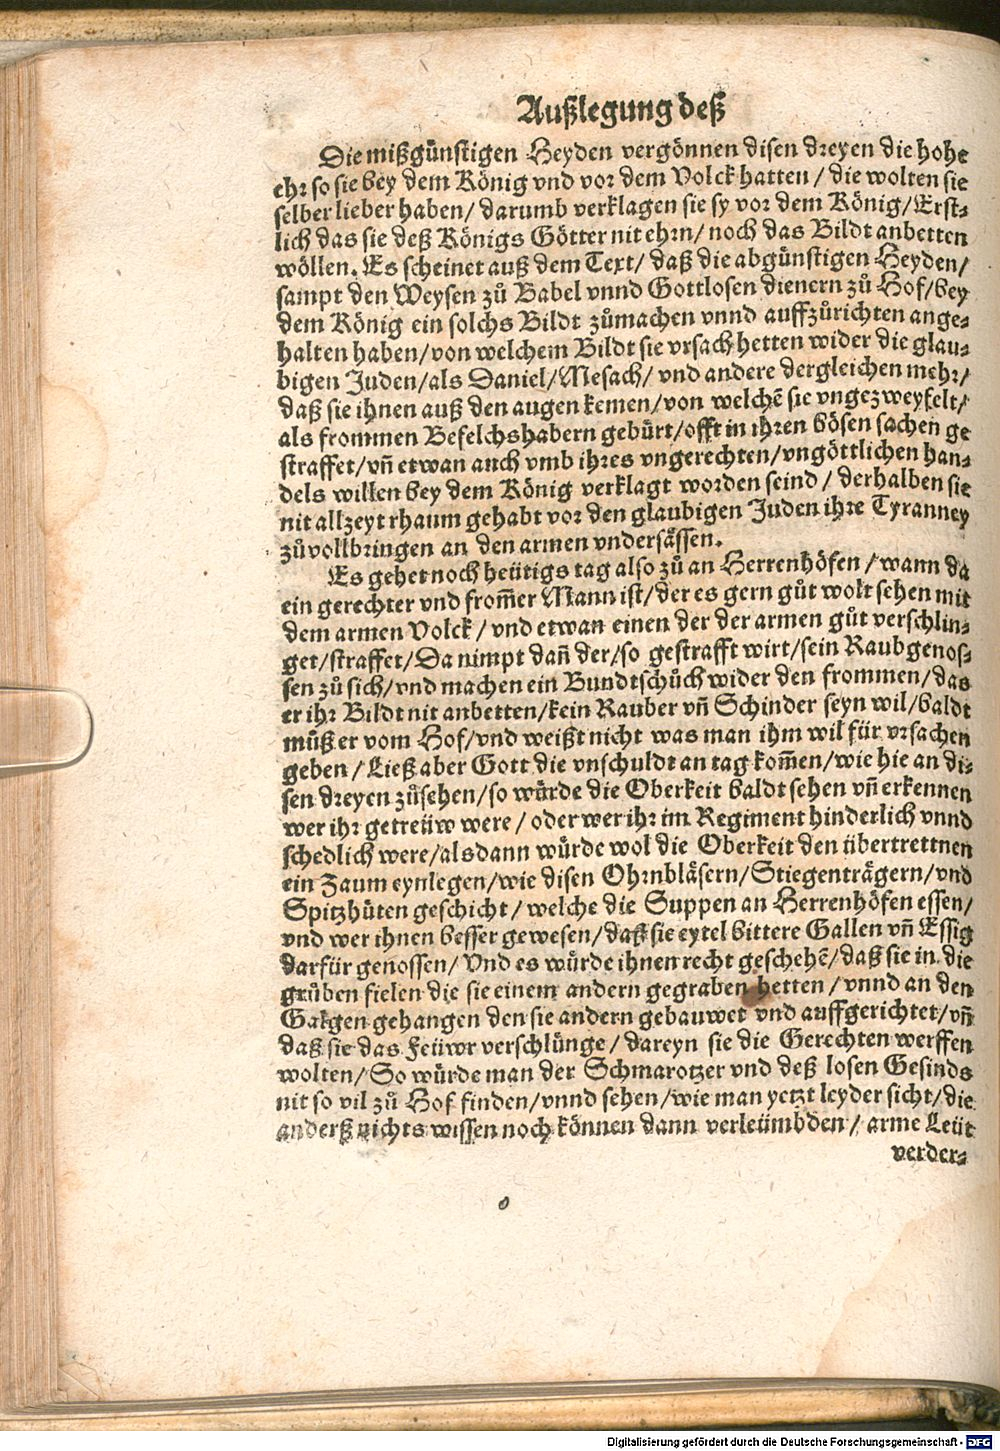 Außlegung deß
Die mißgünstigen Heyden vergönnen disen dreyen die hohe
ehr so sie bey dem König vnd vor dem Volck hatten / die wolten sie
selber lieber haben / darumb verklagen sie sy vor dem König / Erst-
lich das sie deß Königs Götter nit ehrn / noch das Bildt anbetten
wöllen. Es scheinet auß dem Text / daß die abgünstigen Heyden /
sampt den Weysen zů Babel vnnd Gottlosen dienern zů Hof / bey
dem König ein solchs Bildt zůmachen vnnd auffzůrichten ange-
halten haben / von welchem Bildt sie vrsach hetten wider die glau-
bigen Juden / als Daniel / Mesach / vnd andere dergleichen mehr /
daß sie ihnen auß den augen kemen / von welchẽ sie vngezweyfelt /
als frommen Befelchshabern gebürt / offt in ihren bösen sachen ge
straffet / vñ etwan auch vmb ihres vngerechten / vngöttlichen han-
dels willen bey dem König verklagt worden seind / derhalben sie
nit allzeyt rhaum gehabt vor den glaubigen Juden ihre Tyranney
zůvollbringen an den armen vndersässen.
Es gehet noch heütigs tag also zů an Herrenhöfen / wann da
ein gerechter vnd from̃er Mann ist / der es gern gůt wolt sehen mit
dem armen Volck / vnd etwan einen der der armen gůt verschlin-
get / straffet / Da nimpt dañ der / so gestrafft wirt / sein Raubgenos-
sen zů sich / vnd machen ein Bundtschůch wider den frommen / das
er ihr Bildt nit anbetten / kein Rauber vñ Schinder seyn wil / baldt
můß er vom Hof / vnd weißt nicht was man ihm wil für vrsachen
geben / Ließ aber Gott die vnschuldt an tag kom̃en / wie hie an di-
sen dreyen zůsehen / so würde die Oberkeit baldt sehen vñ erkennen
wer ihr getreüw were / oder wer ihr im Regiment hinderlich vnnd
schedlich were / alsdann würde wol die Oberkeit den übertrettnen
ein Zaum eynlegen / wie disen Ohrnbläsern / Stiegenträgern / vnd
Spitzhüten geschicht / welche die Suppen an Herrenhöfen essen /
vnd wer ihnen besser gewesen / daß sie eytel bittere Gallen vñ Essig
darfür genossen / Vnd es würde ihnen recht geschehẽ / daß sie in die
grüben fielen die sie einem andern gegraben hetten / vnnd an den
Galgen gehangen den sie andern gebauwet vnd auffgerichtet / vñ
daß sie das Feüwr verschlünge / dareyn sie die Gerechten werffen
wolten / So würde man der Schmarotzer vnd deß losen Gesinds
nit so vil zů Hof finden / vnnd sehen / wie man yetzt leyder sicht / die
anderß nichts wissen noch können dann verleümbden / arme Leüt
verder-
Digitalisierung gefördert durch die Deutsche Forschungsgemeinschaft - DFG